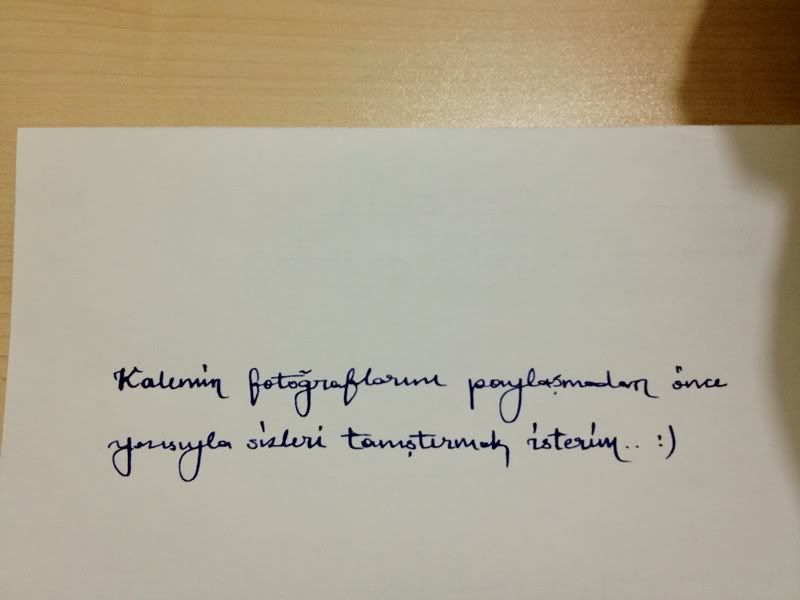 Kalemin fotoğraflarını paylaşmadan önce
yazısıyla sizleri tanıştırmak isterim.. :)